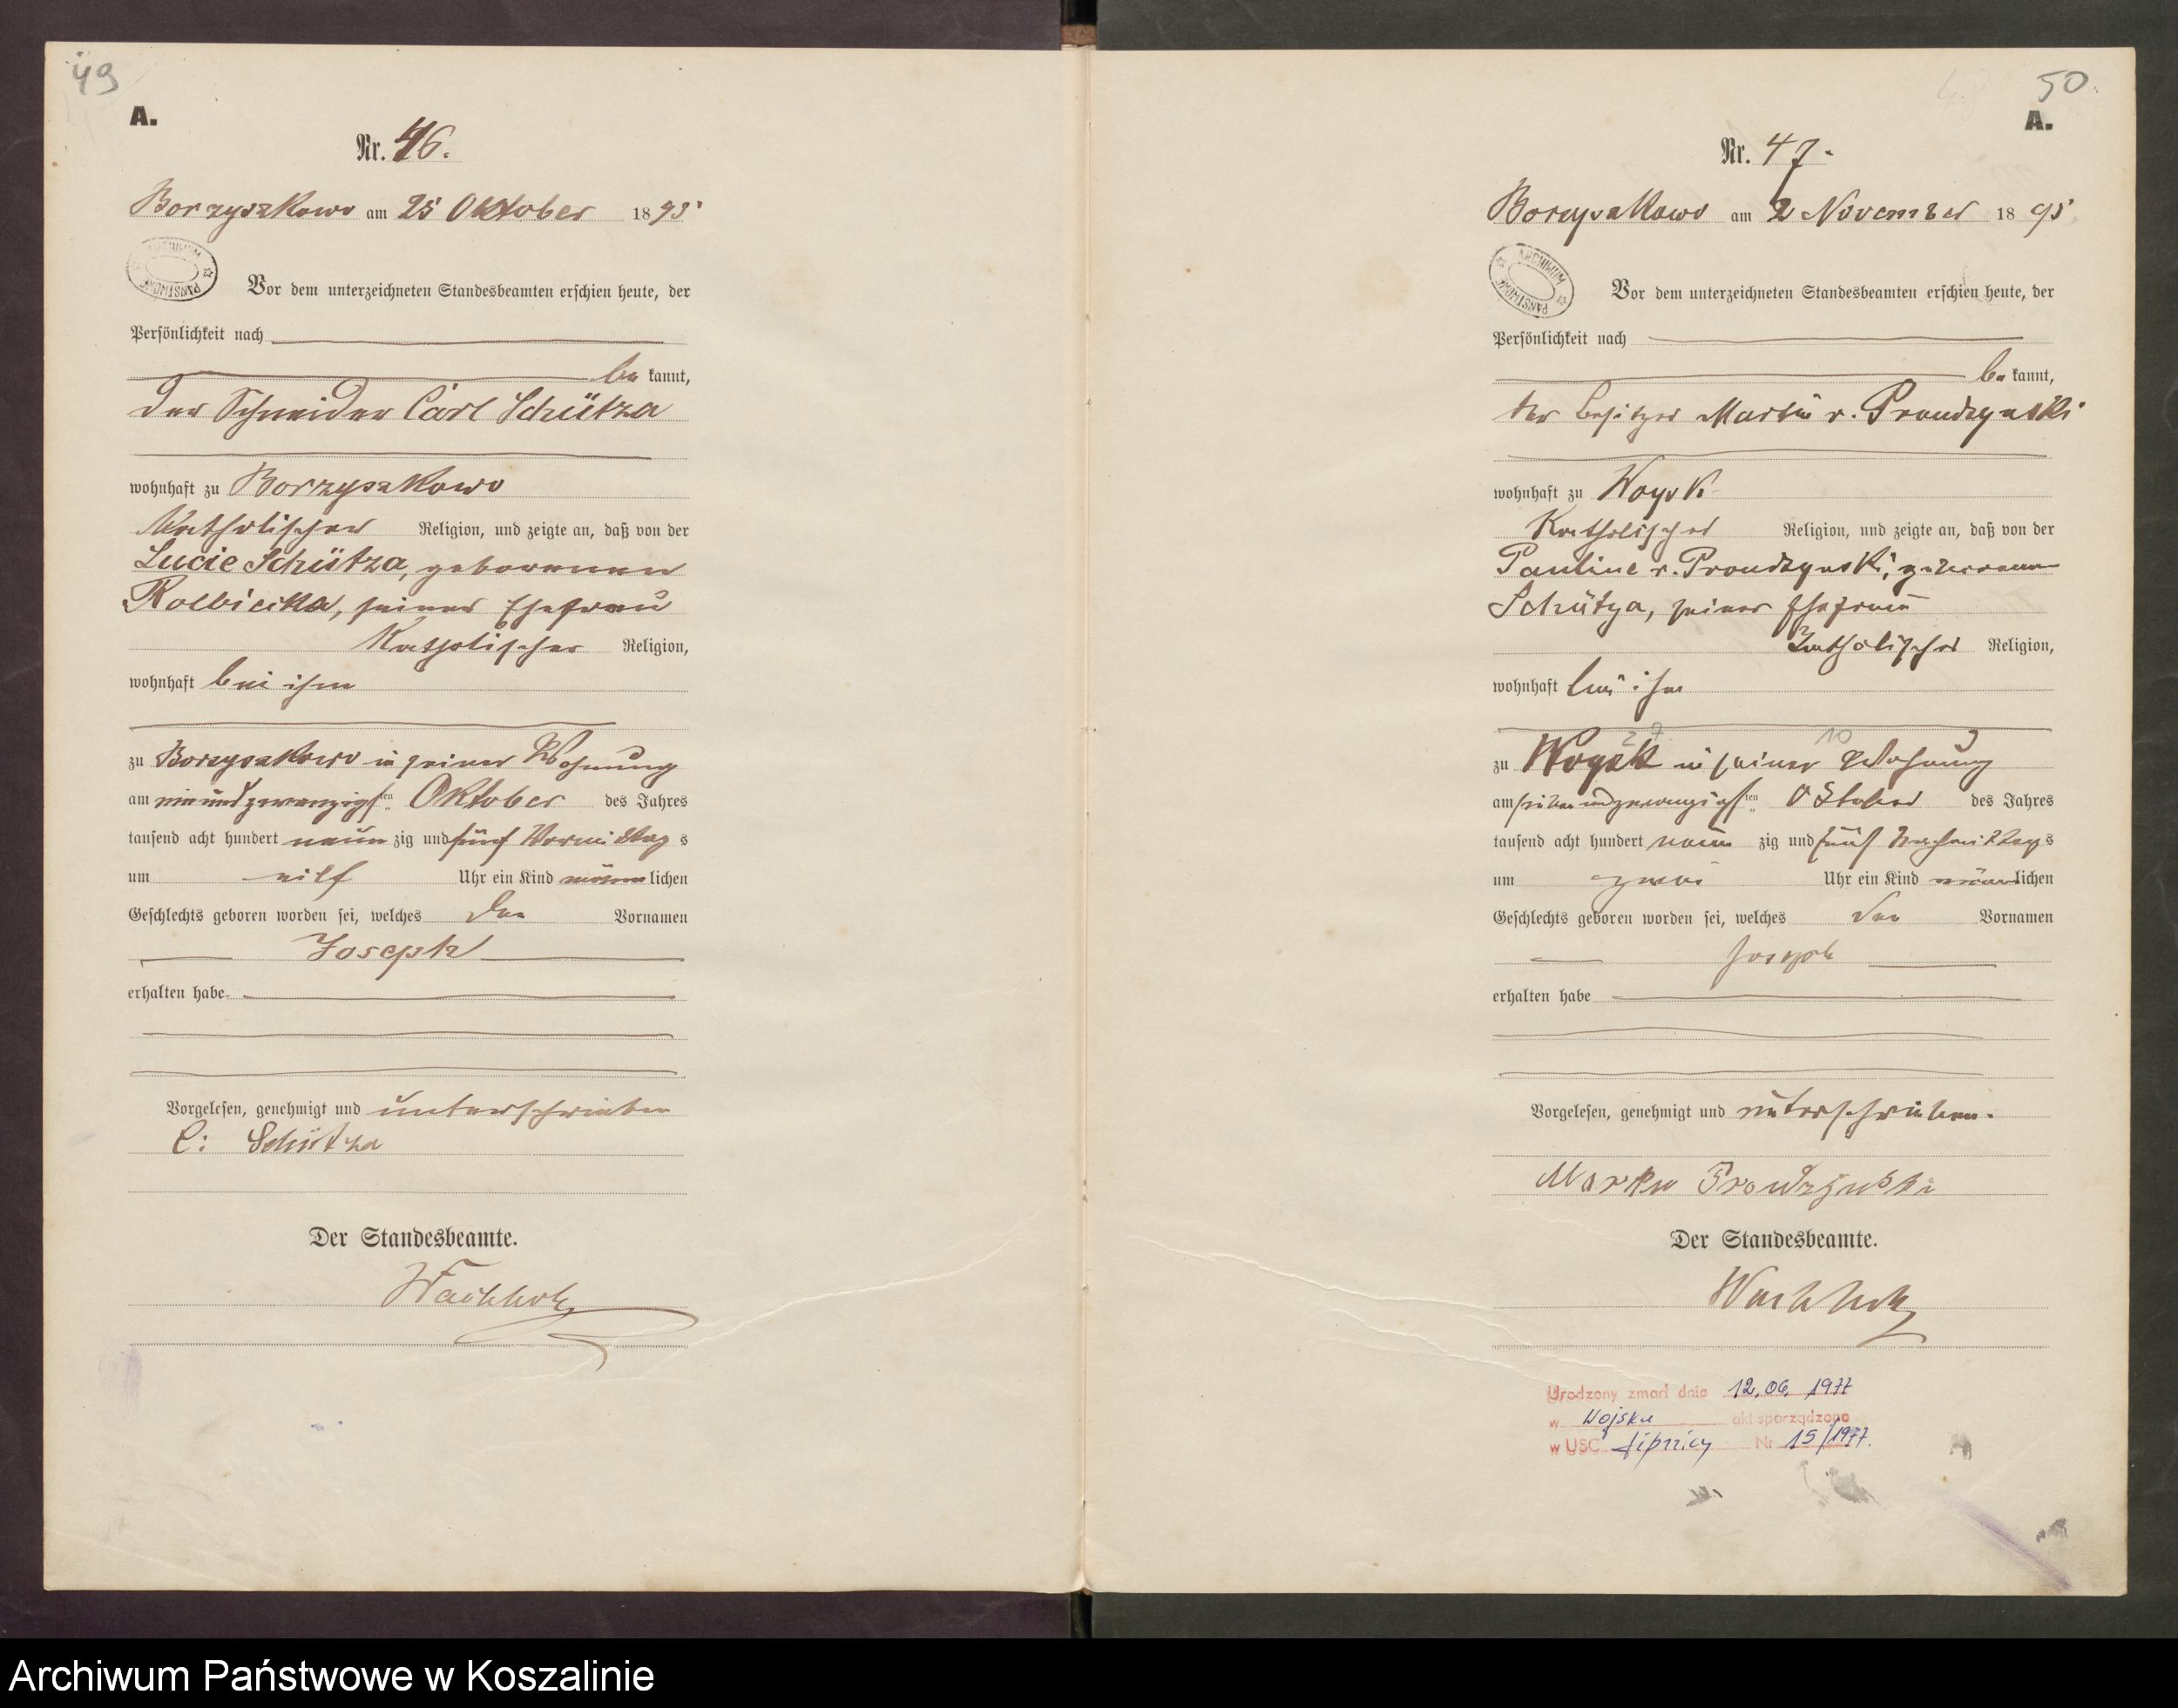 49
A.
Nr. 46.
Borzyszkowo am 25 Oktober 1895
ARCHIWUM PAŃSTWOWE
Vor dem unterzeichneten Standesbeamten erschien heute, der
Persönlichkeit nach
be kannt,
der Schneider Carl Schütza
wohnhaft zu Borzyszkowo
Katholischer Religion, und zeigte an, daß von der
Lucie Schütza, geborenen
Kolbicika, seiner Ehefrau
Katholischer Religion,
wohnhaft bei ihm
zu Borzyszkowo in seiner Wohnung
am einundzwanzigsten Oktober des Jahres
tausend acht hundert neun zig und fünf Vormittag s
um elf Uhr ein Kind männlichen
Geschlechts geboren worden sei, welches den Vornamen
Joseph
erhalten habe.
Vorgelesen, genehmigt und unterschrieben
C: Schütza
Der Standesbeamte.
Wachholz
50.
A.
Nr. 47.
Borzyszkowo am 2 November 1895
ARCHIWUM PAŃSTWOWE
Vor dem unterzeichneten Standesbeamten erschien heute, der
Persönlichkeit nach
be kannt,
der Besitzer Martin v. Prondzynski
wohnhaft zu Woysk
Katholischer Religion, und zeigte an, daß von der
Pauline v. Prondzynski, geborenen
Schütza, seiner Ehefrau
Katholischer Religion,
wohnhaft bei ihm
27 10
zu Woysk in seiner Wohnung
am siebenundzwanzigsten Oktober des Jahres
tausend acht hundert neun zig und fünf Nachmittags
um zwei Uhr ein Kind männlichen
Geschlechts geboren worden sei, welches den Vornamen
Joseph
erhalten habe
Vorgelesen, genehmigt und unterschrieben.
Prondzynski
Der Standesbeamte.
Wachholz
Urodzony zmarł dnia 12.06.1977
w Wojsku akt sporządzono
w USC Lipnicy Nr 15/1977.
Archiwum Państwowe w Koszalinie